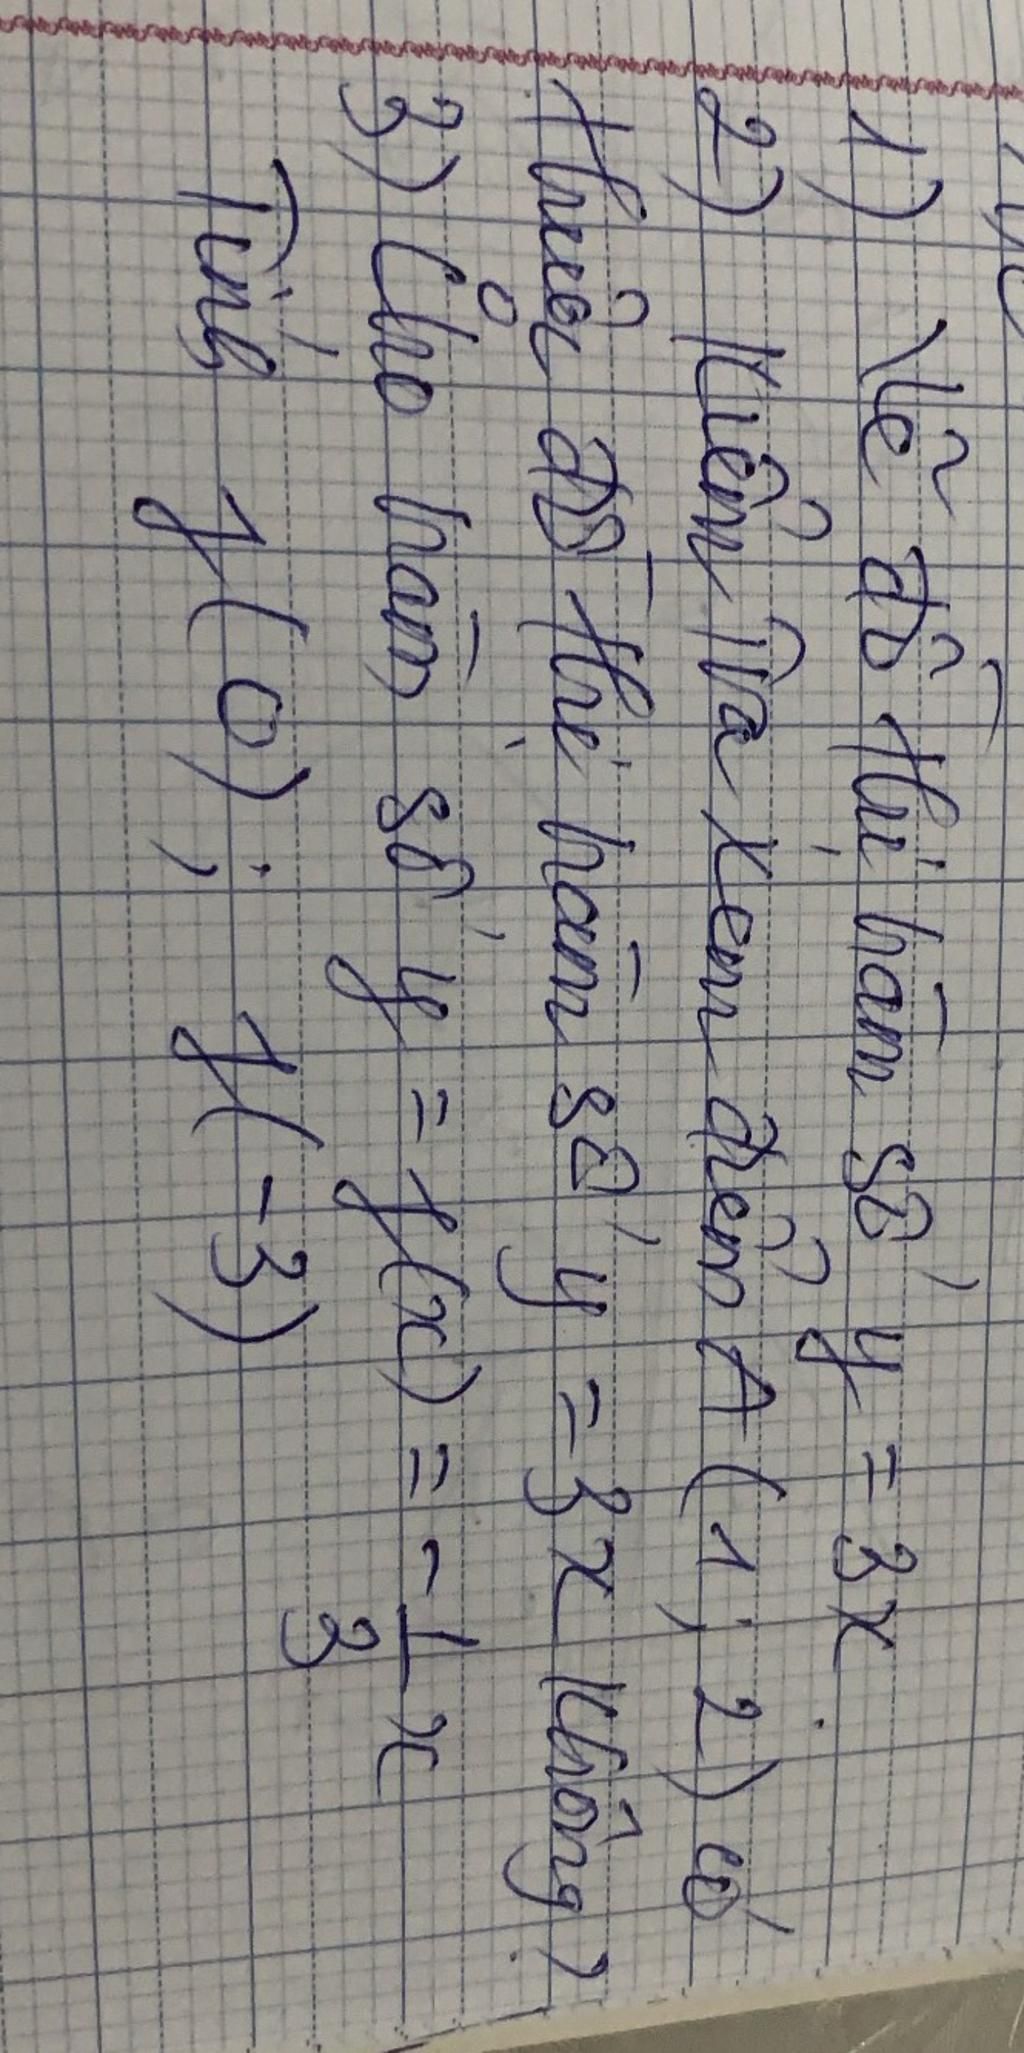 1) Vẽ đồ thị hàm số y = 3x.
2) Kiểm tra xem điểm A (1; 2) có
thuộc đồ thị hàm số y = 3x không?
3) Cho hàm số y = f(x) = -1/3 x
Tính f(0); f(-3)